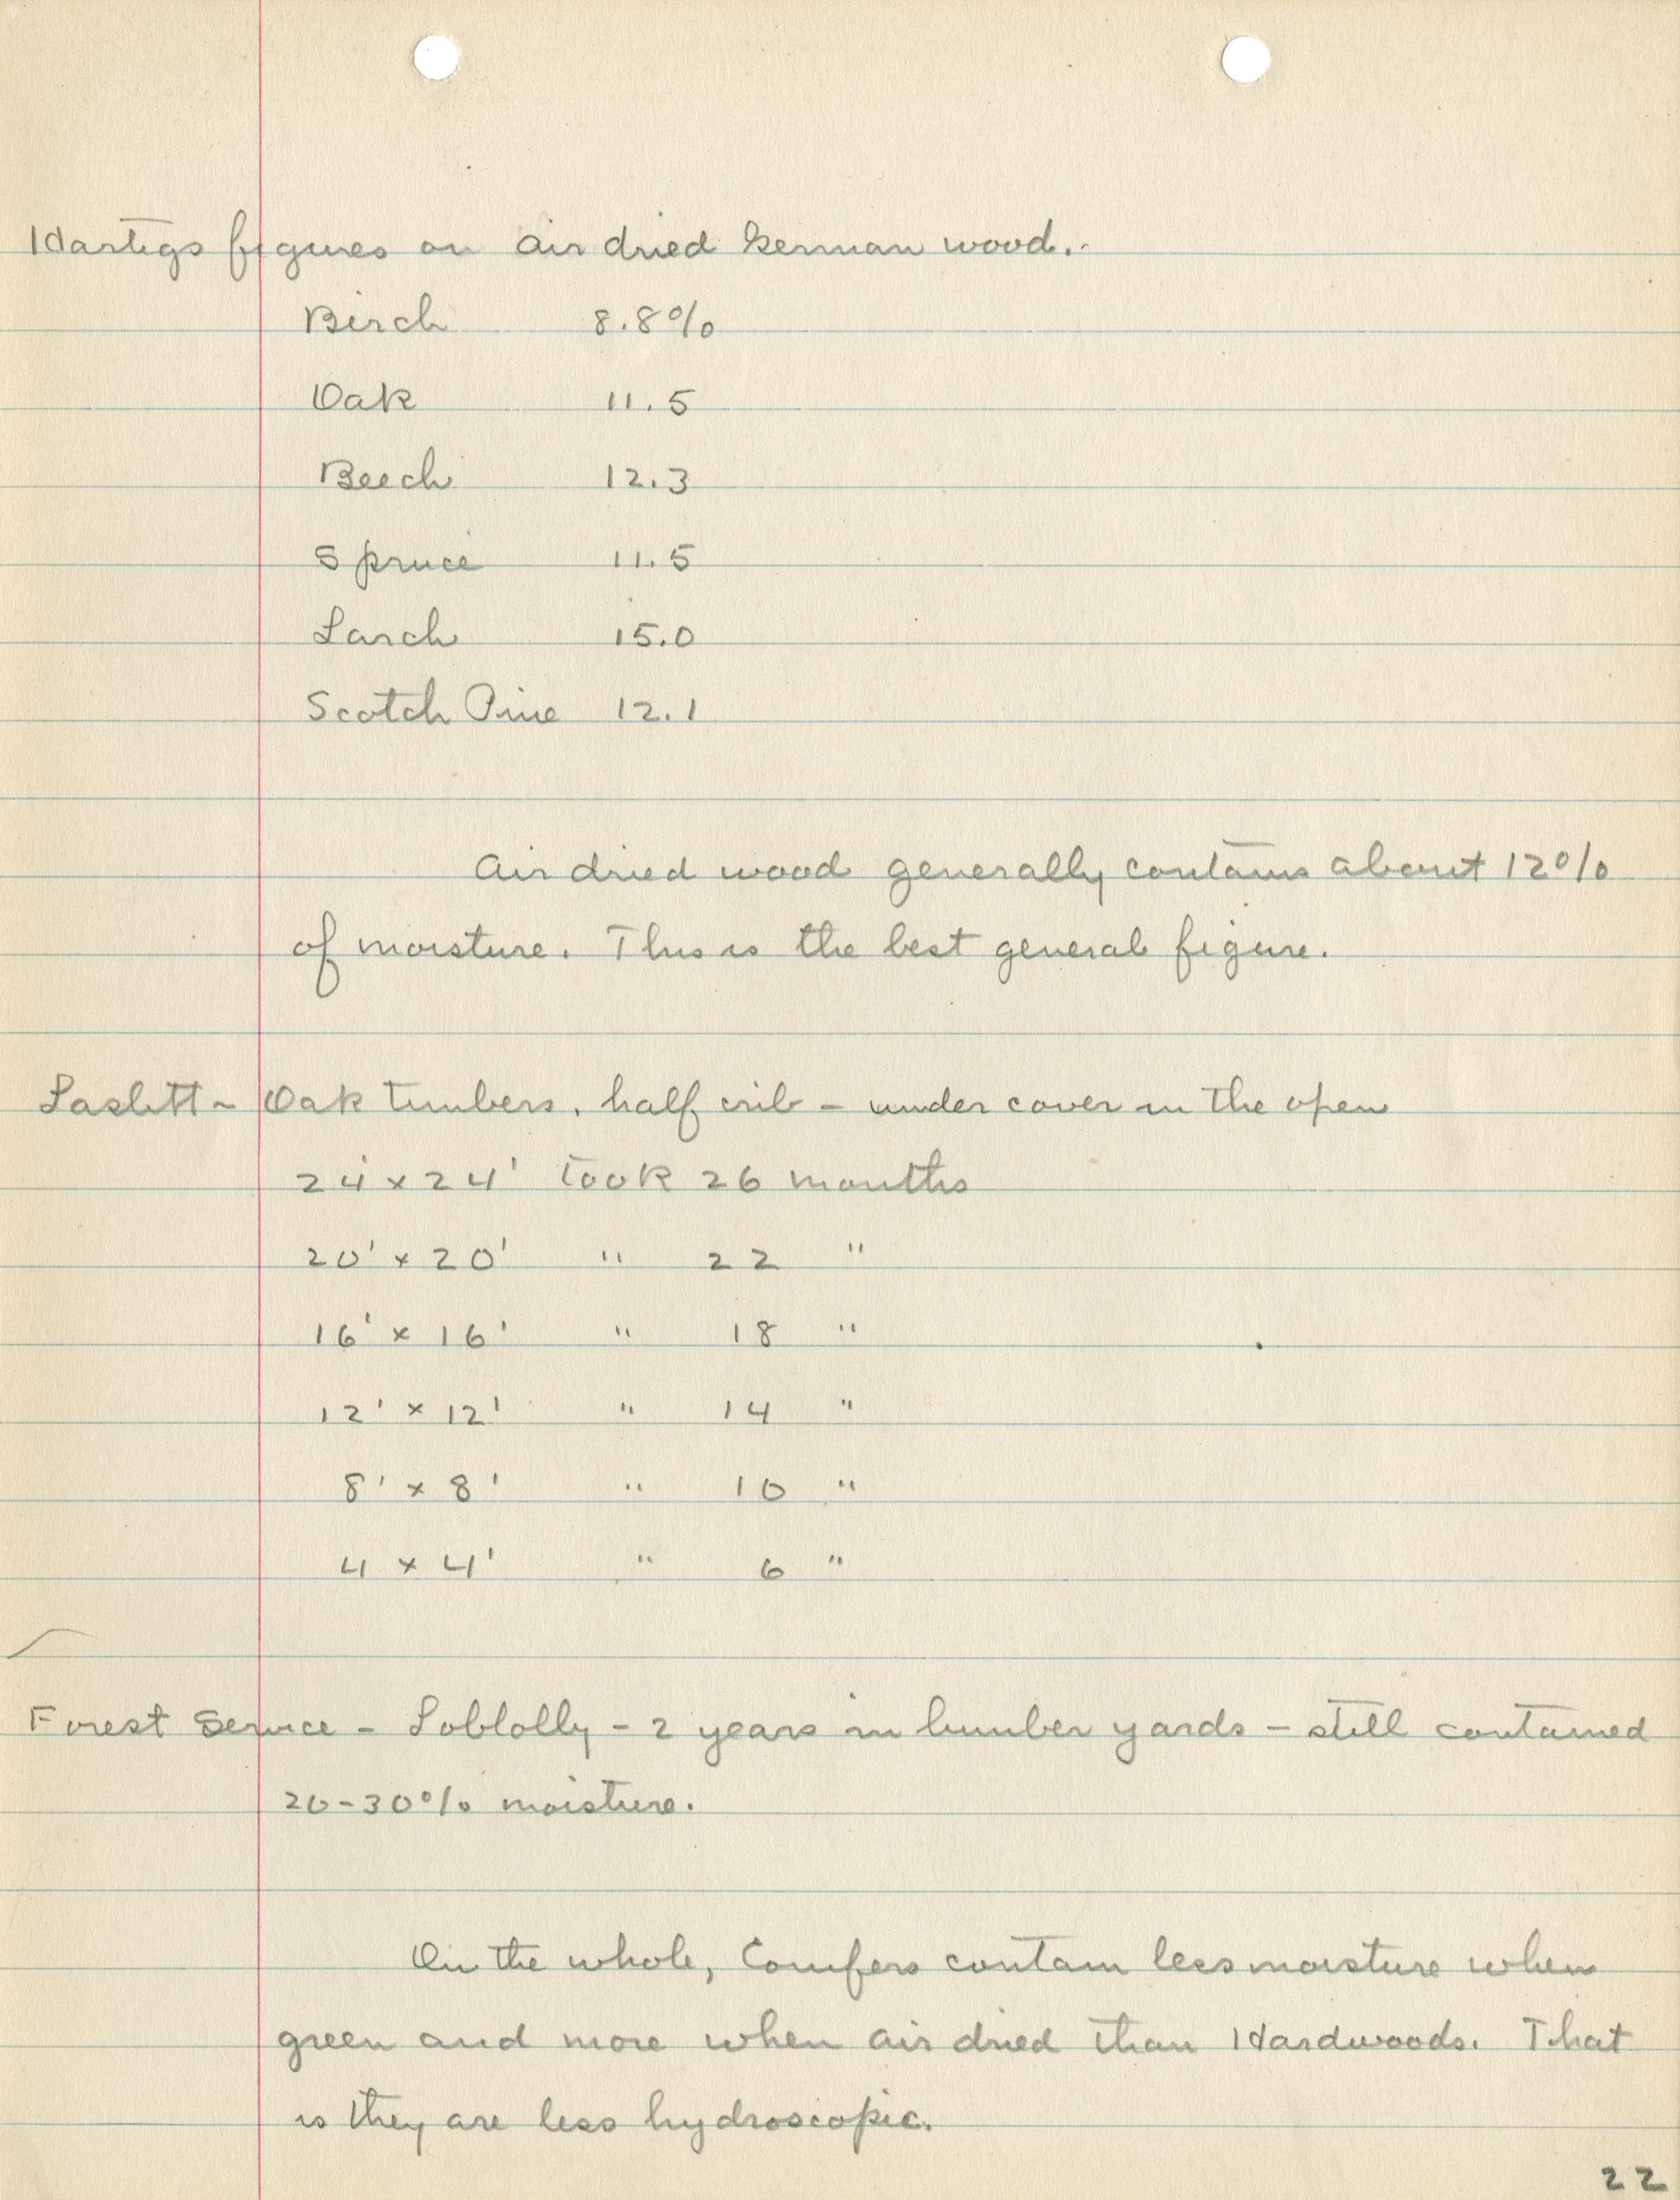 Hartigs figures on Air dried German wood.
Berch 8.8%
Oak 11.5
Beech 12.3
Spruce 11.5
Larch 15.0
Scotch Pine 12.1
Air dried wood generally contains about 12%
of moisture. This is the best general figure.
Laslett - Oak timbers, half - under cover in the open
24 x 24' took 26 months
20' x 20' " 22 "
16' x 16' " 18 "
12' x 12' " 14 "
8' x 8' " 10 "
4 x 4' " 6 "
Forest Service - Loblolly - 2 years in lumber yards - still contained
20-30% moisture.
On the whole, Conifers contain less moisture when
green and more when air dried than Hardwoods. That
is they are less hydroscopic.
22